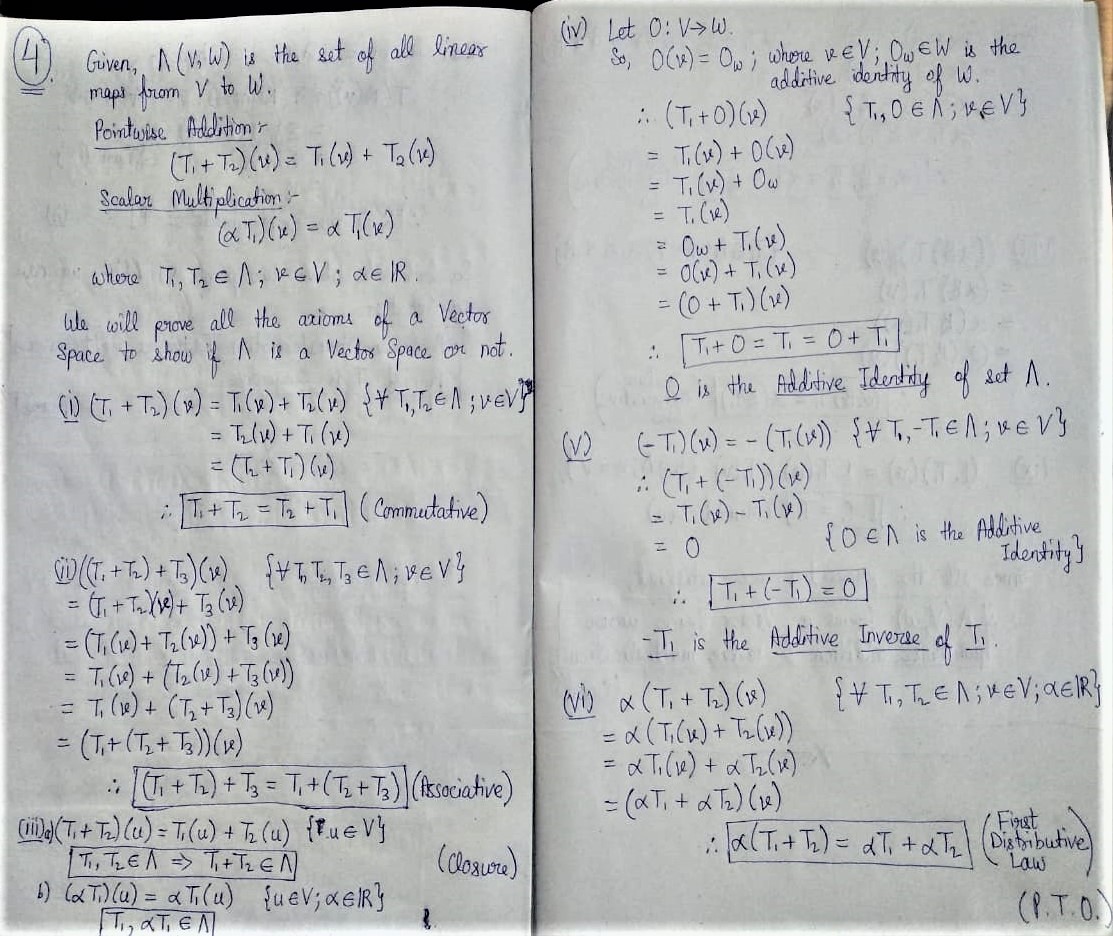 4.
Given, Λ(V,W) is the set of all linear
maps from V to W.
Pointwise Addition:-
(T₁ + T₂)(v) = T₁(v) + T₂(v)
Scalar Multiplication:-
(αT₁)(v) = αT₁(v)
where T₁, T₂ ∈ Λ; v ∈ V; α ∈ ℝ.
We will prove all the axioms of a Vector
Space to show if Λ is a Vector Space or not.
(i) (T₁ + T₂)(v) = T₁(v) + T₂(v) {∀ T₁,T₂ ∈ Λ; v ∈ V}
= T₂(v) + T₁(v)
= (T₂ + T₁)(v)
∴ T₁ + T₂ = T₂ + T₁ (Commutative)
(ii) ((T₁ + T₂) + T₃)(v) {∀ T₁,T₂,T₃ ∈ Λ; v ∈ V}
= (T₁ + T₂)(v) + T₃(v)
= (T₁(v) + T₂(v)) + T₃(v)
= T₁(v) + (T₂(v) + T₃(v))
= T₁(v) + (T₂ + T₃)(v)
= (T₁ + (T₂ + T₃))(v)
∴ (T₁ + T₂) + T₃ = T₁ + (T₂ + T₃) (Associative)
(iii) a) (T₁ + T₂)(u) = T₁(u) + T₂(u) {u ∈ V}
T₁, T₂ ∈ Λ ⇒ T₁+T₂ ∈ Λ (Closure)
b) (αT₁)(u) = αT₁(u) {u ∈ V; α ∈ ℝ}
T₁, αT₁ ∈ Λ
(iv) Let O: V→W.
So, O(v) = Ow; where v ∈ V; Ow ∈ W is the
additive identity of W.
∴ (T₁ + O)(v) {T₁, O ∈ Λ; v ∈ V}
= T₁(v) + O(v)
= T₁(v) + Ow
= T₁(v)
= Ow + T₁(v)
= O(v) + T₁(v)
= (O + T₁)(v)
∴ T₁ + O = T₁ = O + T₁
O is the Additive Identity of set Λ.
(v) (-T₁)(v) = -(T₁(v)) {∀ T₁, -T₁ ∈ Λ; v ∈ V}
∴ (T₁ + (-T₁))(v)
= T₁(v) - T₁(v)
= O {O ∈ Λ is the Additive
Identity}
∴ T₁ + (-T₁) = O
-T₁ is the Additive Inverse of T₁.
(vi) α(T₁ + T₂)(v) {∀ T₁, T₂ ∈ Λ; v ∈ V; α ∈ ℝ}
= α(T₁(v) + T₂(v))
= αT₁(v) + αT₂(v)
= (αT₁ + αT₂)(v)
∴ α(T₁ + T₂) = αT₁ + αT₂ (First
Distributive
Law)
(P.T.O.)